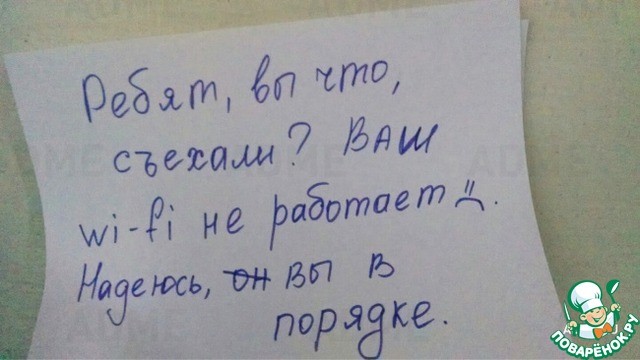 Ребят, вы что,
съехали? ВАШ
wi-fi не работает =(.
Надеюсь, он вы в
порядке.
ПОВАРЁНОК.РУ